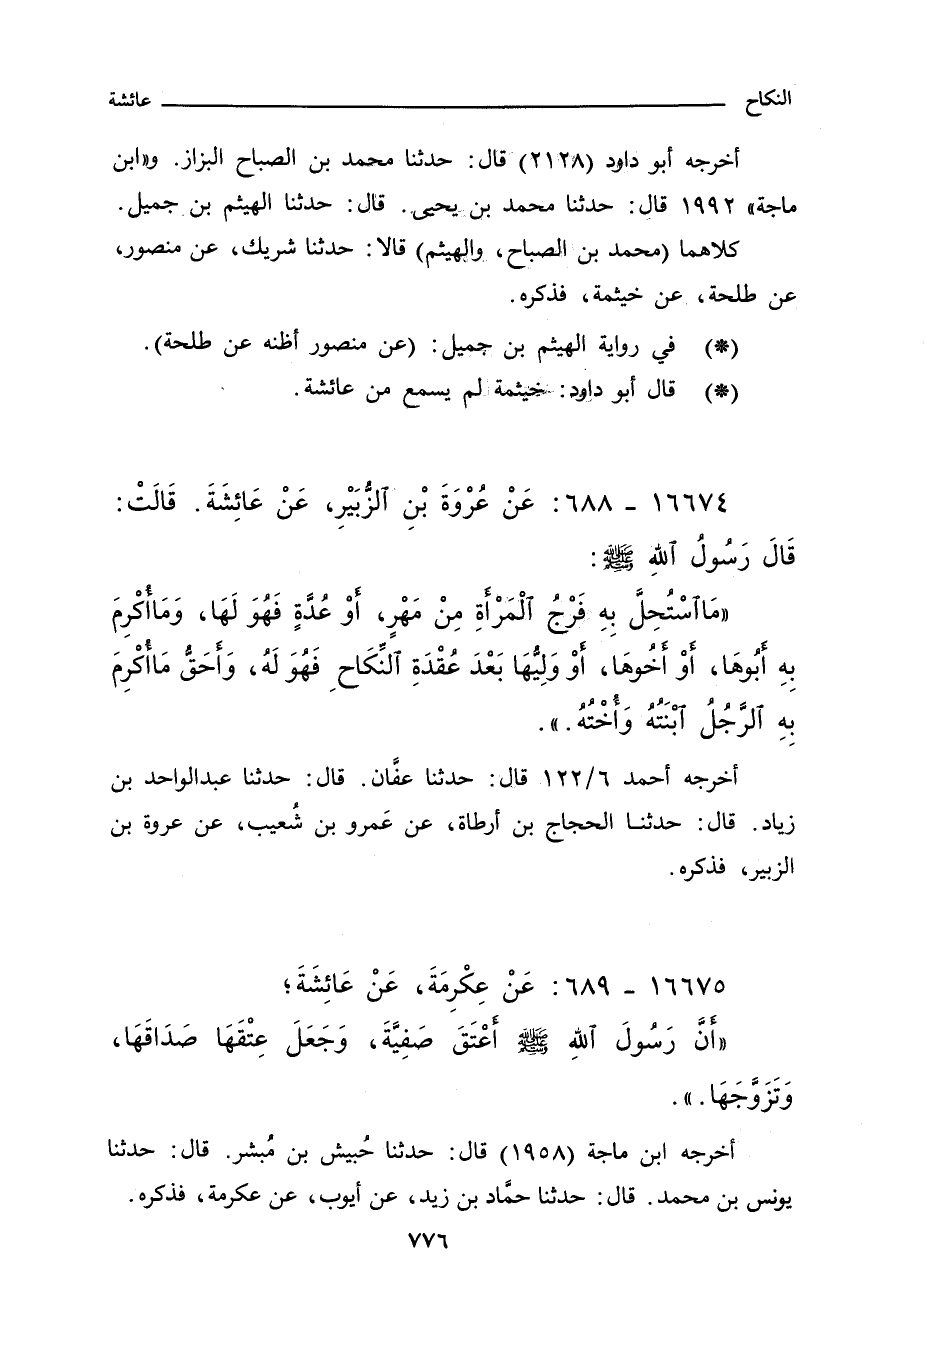 النكاح ــــــــــــــــــــ عائشة
أخرجه أبو داود (٢١٢٨) قال: حدثنا محمد بن الصباح البزاز. و«ابن
ماجة» ١٩٩٢ قال: حدثنا محمد بن يحيى. قال: حدثنا الهيثم بن جميل.
كلاهما (محمد بن الصباح، والهيثم) قالا: حدثنا شريك، عن منصور،
عن طلحة، عن خيثمة، فذكره.
(*) في رواية الهيثم بن جميل: (عن منصور أظنه عن طلحة).
(*) قال أبو داود: خيثمة لم يسمع من عائشة.
١٦٦٧٤ - ٦٨٨: عَنْ عُرْوَةَ بْنِ ٱلزُّبَيْرِ، عَنْ عَائِشَةَ. قَالَتْ:
قَالَ رَسُولُ ٱللهِ ﷺ:
«مَاٱسْتُحِلَّ بِهِ فَرْجُ ٱلْمَرْأَةِ مِنْ مَهْرٍ، أَوْ عُدَّةٍ فَهُوَ لَهَا، وَمَاأُكْرِمَ
بِهِ أَبُوهَا، أَوْ أَخُوهَا، أَوْ وَلِيُّهَا بَعْدَ عُقْدَةِ ٱلنِّكَاحِ فَهُوَ لَهُ، وَأَحَقُّ مَاأُكْرِمَ
بِهِ ٱلرَّجُلُ ٱبْنَتُهُ وَأُخْتُهُ.».
أخرجه أحمد ١٢٢/٦ قال: حدثنا عفَّان. قال: حدثنا عبدالواحد بن
زياد. قال: حدثنا الحجاج بن أرطاة، عن عَمرو بن شُعيب، عن عروة بن
الزبير، فذكره.
١٦٦٧٥ - ٦٨٩: عَنْ عِكْرِمَةَ، عَنْ عَائِشَةَ؛
«أَنَّ رَسُولَ ٱللهِ ﷺ أَعْتَقَ صَفِيَّةَ، وَجَعَلَ عِتْقَهَا صَدَاقَهَا،
وَتَزَوَّجَهَا.».
أخرجه ابن ماجة (١٩٥٨) قال: حدثنا حُبيش بن مُبشر. قال: حدثنا
يونس بن محمد. قال: حدثنا حمَّاد بن زيد، عن أيوب، عن عكرمة، فذكره.
٧٧٦